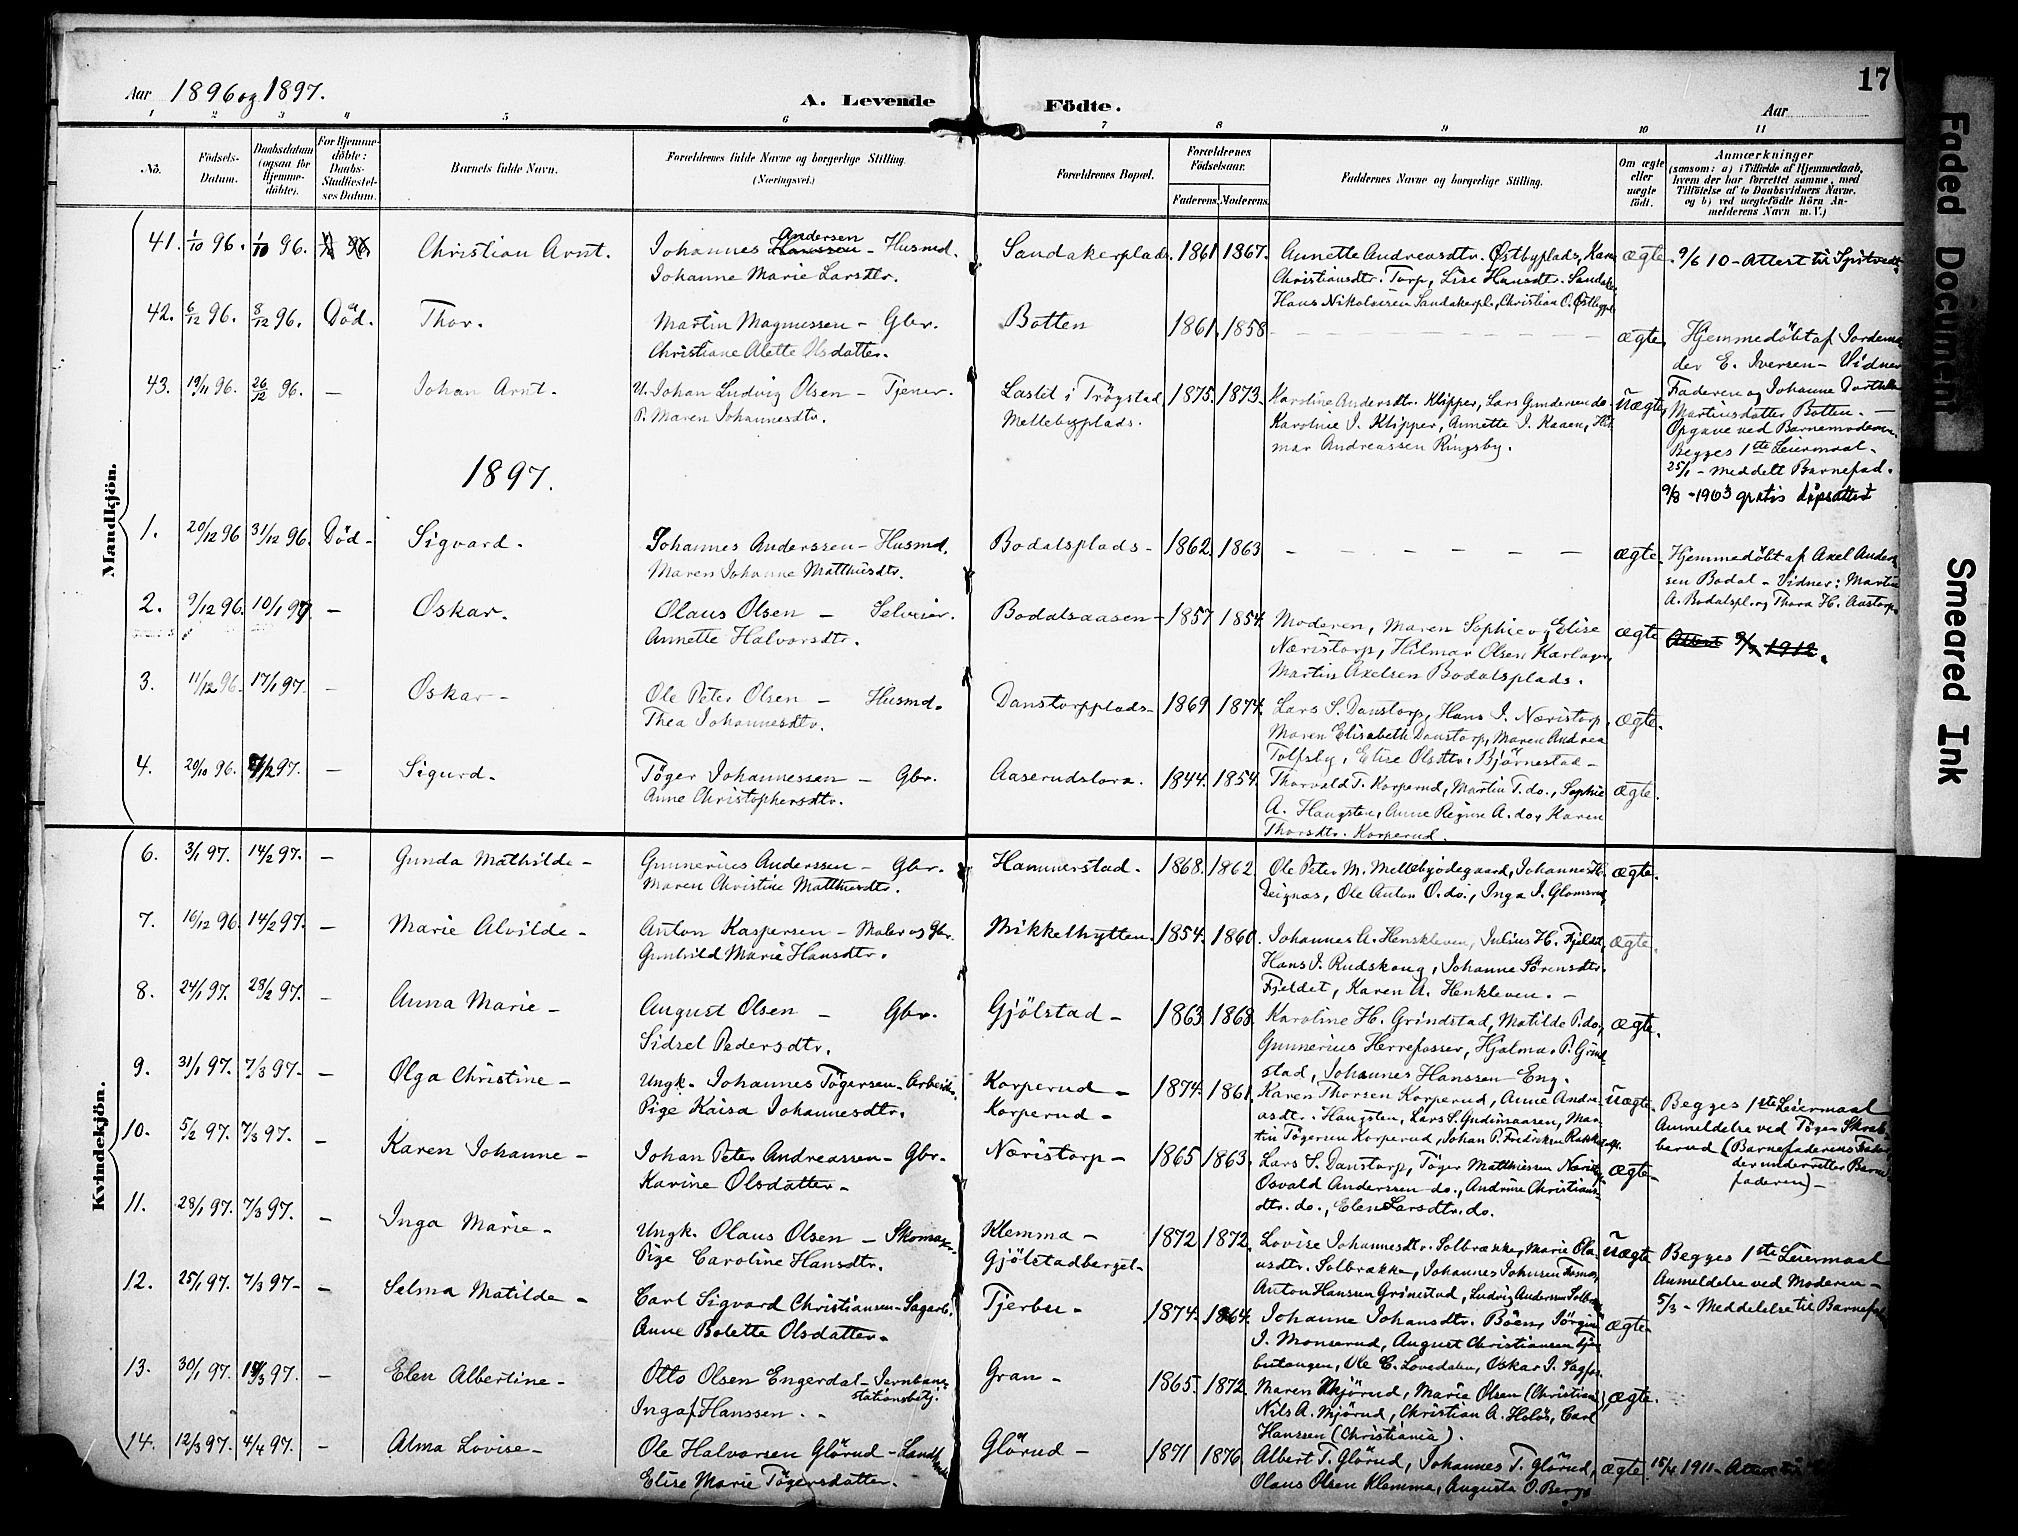 Aar 1896 og 1897.
A. Levende Födte.
Aar
17
1 2 3 4 5 6 7 8 9 10 11
No.
Födsels-Datum.
Daabsdatum (ogsaa for Hjemmedöbte).
For Hjemmedöbte: Daabs-Stadfæstelses Datum.
Barnets fulde Navn.
Forældrenes fulde Navne og borgerlige Stilling (Næringsvei.)
Forældrenes Bopæl.
Forældrenes Födselsaar.
Faderens. Moderens.
Faddernes Navne og borgerlige Stilling.
Om ægte eller uægte födt.
Anmærkninger
(sansom: a) i Tilfælde af Hjemmedaab, hvem der har forrettet samme, med Tilföielse af to Daabsvidners Navne, og b) ved uegtefödte Börn Anmelderens Navn m. V.)
Mandkjön.
41. 1/10 96. 1/10 96. Christian Arnt. Johannes Hanssen Andersen - Husmd. Sandakerplads. 1861 1867. Annette Andreasdtr. Østbyplads, Karen ægte. 9/6 10 - Attest til
Johanne Marie Larsdtr. Christiansdtr. Torp, Lise Hansdtr. Sandaker
Hans Nikolaisen Sandakerpl., Christian O. Østbypl.
42. 6/12 96. 8/12 96. Död. Thor. Martin Magnussen - Gbr. Botten 1861. 1858 - ægte. Hjemmedöbt af Jordemo
Christiane Alette Olsdatter. der E. Iversen - Vidner
43. 19/11 96. 26/12 96. - Johan Arnt. U. Johan Ludvig Olsen - Tjener. Lastd i Trögstad 1875. 1873. Karoline Andersdtr. Klipper, Lars Gundersen do. Uægte, Faderen og Johanne Dorthea
P. Maren Johannesdtr. Mellebyplads. Karoline J. Klipper, Annette J. Kaaen, Hil Martinsdatter Botten. -
mar Andreassen Ringsby. Opgave ved Barnemoderen.
Begges 1ste Leiermaal.
25/1 - meddelt Barnefad.
9/8 - 1903 gratis dåpsattest
1897.
1. 20/12 96 31/12 96. Död - Sigvard. Johannes Anderssen - Husmd. Bodalsplads - 1862. 1863 - ægte. Hjemmedöbt af Axel Anders
Maren Johanne Matthisdtr. sen Bodal - Vidner: Martin
2. 9/12 96. 10/1 97 - Oskar. Olaus Olsen - Selveier. Bodalsaasen - 1857 1854. Moderen, Maren Sophie og Elise ægte A. Bodalspl. og Thora H. Aastorp.
Annette Halvorsdtr. Næristorp, Hilmar Olsen Karlager, Attest 9/7 1912.
Martin Axelsen Bodalsplads.
3. 11/12 96. 17/1 97. - Oskar - Ole Peter Olsen - Husmd. Danstorpplads - 1869 1874. Lars S. Danstorp, Hans J. Næristorp, ægte.
Thea Johannesdtr. Maren Elisabeth Danstorp, Maren Andrea
Tolfsby, Elise Olsdtr. Björnestad -
4. 20/10 96. 7/2 97. - Sigurd. Töger Johannessen - Gbr. Aaserudstora. 1844. 1854. Thorvald T. Korperud, Martin T. do., Sophie ægte.
Anne Christophersdtr. A. Haugsten, Anne Regine A. do, Karen
Thorsdtr. Korperud.
Kvindekjön.
6. 3/1 97. 14/2 97. - Gunda Mathilde - Gunnerius Anderssen - Gbr. Hammerstad. 1868. 1862 Ole Peter M. Mellebyödegaard, Johannes H. ægte.
Maren Christine Matthisdtr. Deignæs, Ole Anton O. do., Inga J. Glomsrud
7. 16/12 96. 14/2 97. - Marie Alvilde - Anton Kaspersen - Maler og Gbr. Mikkelhytten. 1854. 1860. Johannes A. Henskleven, Julius H. Fjeldet, ægte.
Gunhild Marie Hansdtr. Hans J. Rudskoug, Johanne Sörensdtr.
Fjeldet, Karen A. Henkleven. -
8. 24/1 97. 28/2 97. - Anna Marie - August Olsen - Gbr. Gjölstad - 1863 1868. Karoline H. Grindstad, Matilde P. do, ægte.
Sidsel Pedersdtr. Gunnerius Herrefosser, Hjalmar P. Grind
stad, Johannes Hanssen Eng.
9. 31/1 97. 7/3 97 - - Olga Christine - Ungk. Johannes Tögersen - Arbeider. Korperud - 1874. 1861. Karen Thorsen Korperud, Anne Andre Uægte. Begges 1ste Leiermaal
Pige Kaisa Johannesdtr. Korperud - asdtr. Haugsten, Lars S. Gudimaasen, Mar Anmeldelse ved Töger Skrab
tin Tögersen Korperud, Johan P. Fredriksen Rakkestad. berud (Barnefaderens Fader
10. 5/2 97. 7/3 97. - Karen Johanne - Johan Peter Andreassen - Gbr. Næristorp - 1865 1863. Lars S. Danstorp, Töger Matthiessen Næristorp, ægte - der underretter Barne
Karine Olsdatter - Osvald Anderssen do., Andrine Christians faderen) -
dtr. do., Elen Larsdtr. do.
11. 28/1 97. 7/3 97. - Inga Marie - Ungk. Olaus Olsen - Skomager. Klemma - 1872 1872. Lovise Johannesdtr. Solbrække, Marie Ola Uægte Begges 1ste Leiermaal
Pige Caroline Hansdtr. Gjölstadberget - usdtr. Solbrække, Johannes Johnsen Anmeldelse ved Moderen -
Anton Hanssen Grinestad, Ludvig Andersen 5/3 - Meddelelse til Barnefad
12. 25/1 97. 7/3 97 - - Selma Matilde - Carl Sigvard Christiansen - Sagarb. Tjerbu - 1874. 1864. Johanne Johansdtr. Böen, Jörgine ægte -
Anne Bolette Olsdatter - J. Monserud, August Christiansen
butangen, Ole C. Lovedalen, Oskar J. Sagfos.
13. 30/1 97. 14/3 97. - Elen Albertine - Otto Olsen Engerdal - Jernbane stationsbetj. Gran - 1865. 1872. Maren Mjörud, Marie Olsen (Christiania), ægte.
Inga f. Hanssen. - Nils A. Mjörud, Christian A. Holös, Carl
Hanssen (Christiania).
14. 12/3 97. 4/4 97. - Alma Lovise - Ole Halvorsen Glörud - Landh. Glörud - 1871 1876. Albert T. Glörud, Johannes T. Glörud, ægte. 15/4 1911 - Attest til
Elise Marie Tögersdatter. Olaus Olsen Klemma, Augusta O. Berg.
Faded Document
Smeared Ink